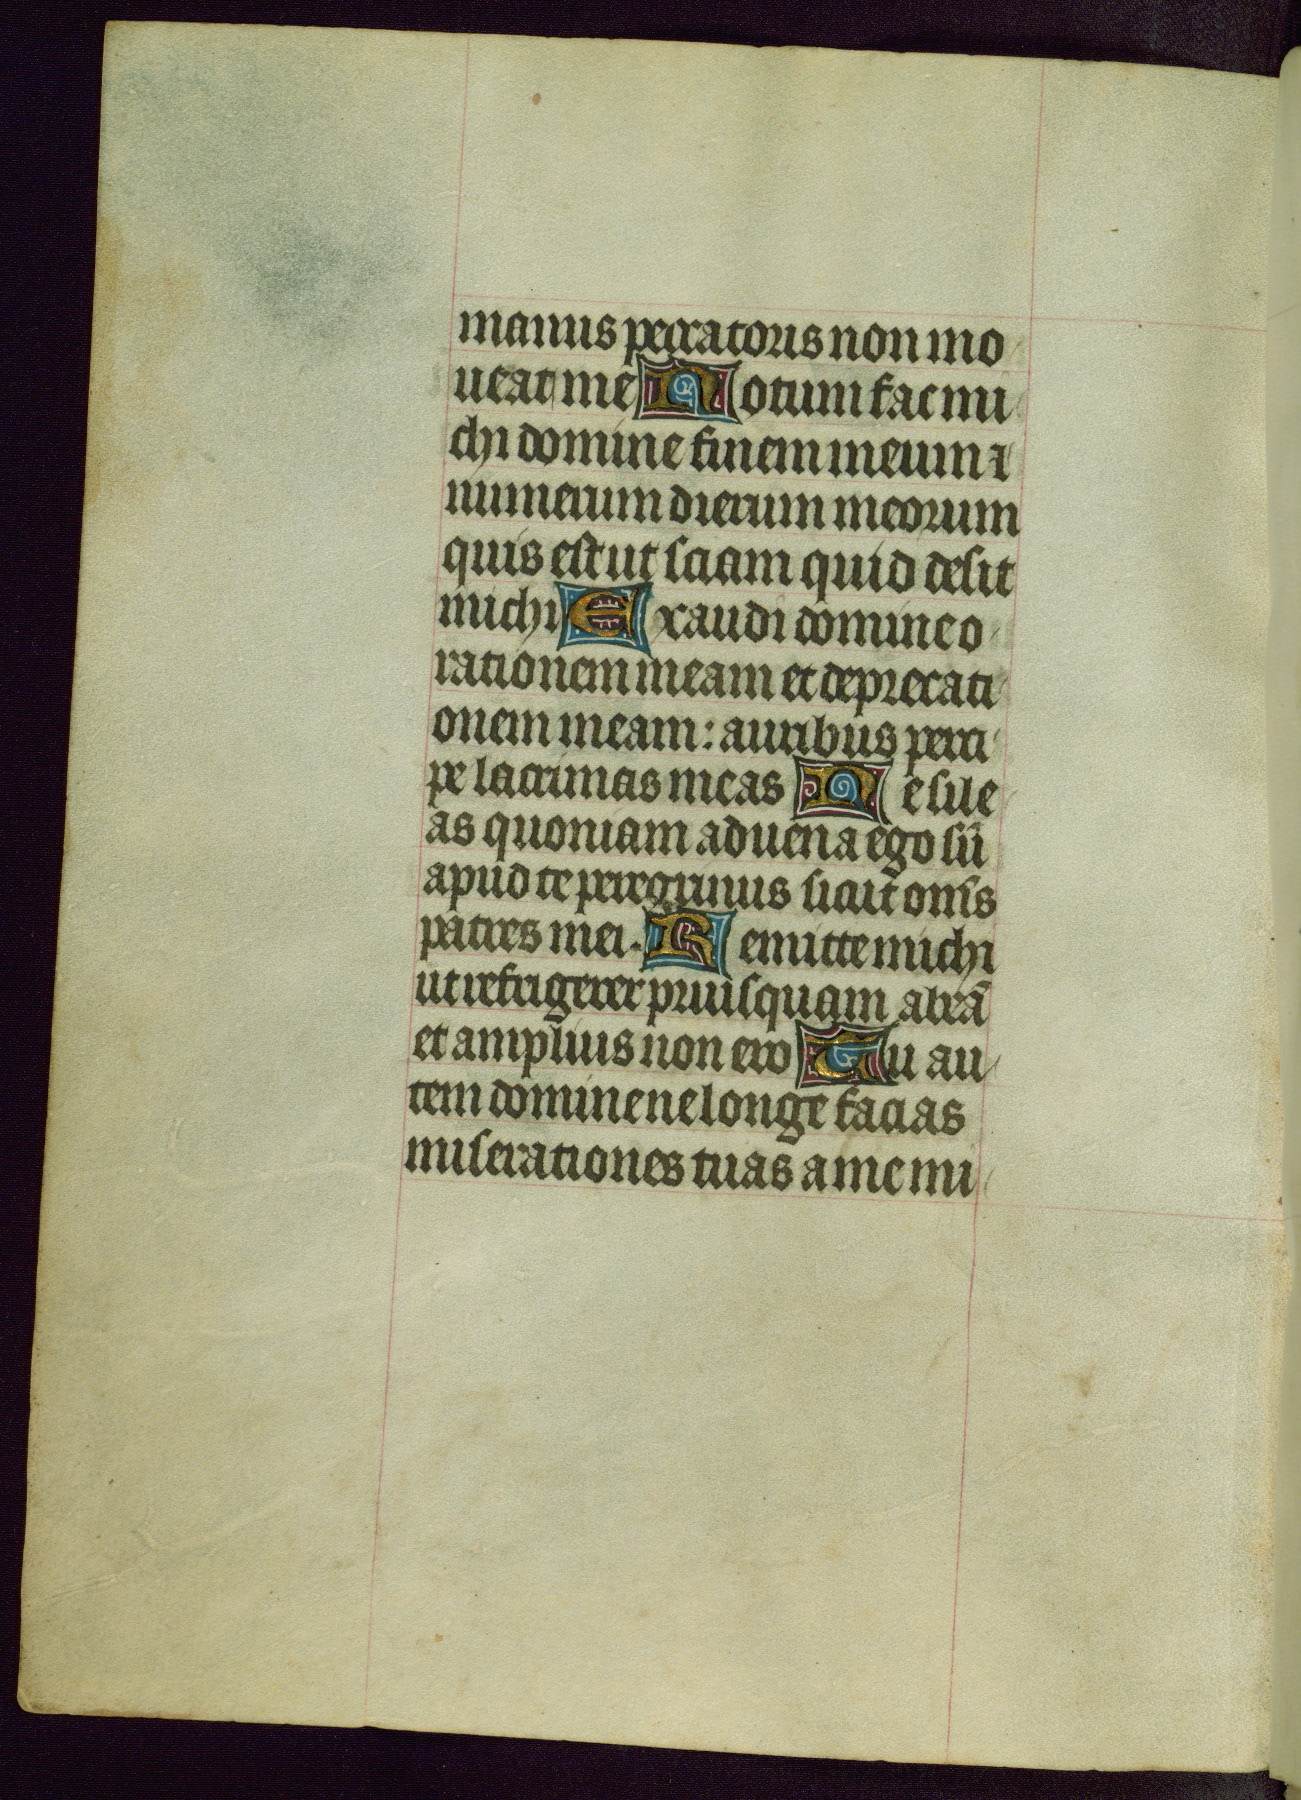 manus peccatoris non mo
ueat me Notum fac mi
chi domine finem meum ⁊
numerum dierum meorum
quis est ut sciam quid desit
michi Exaudi domine o
rationem meam et deprecati
onem meam: auribus perci
pe lacrimas meas Ne sile
as quoniam aduena ego sū
apud te peregrinus sicut om̄s
patres mei. Remitte michi
ut refrigerer priusquam abeā
et amplius non ero Tu au
tem domine ne longe facias
miserationes tuas a me mi